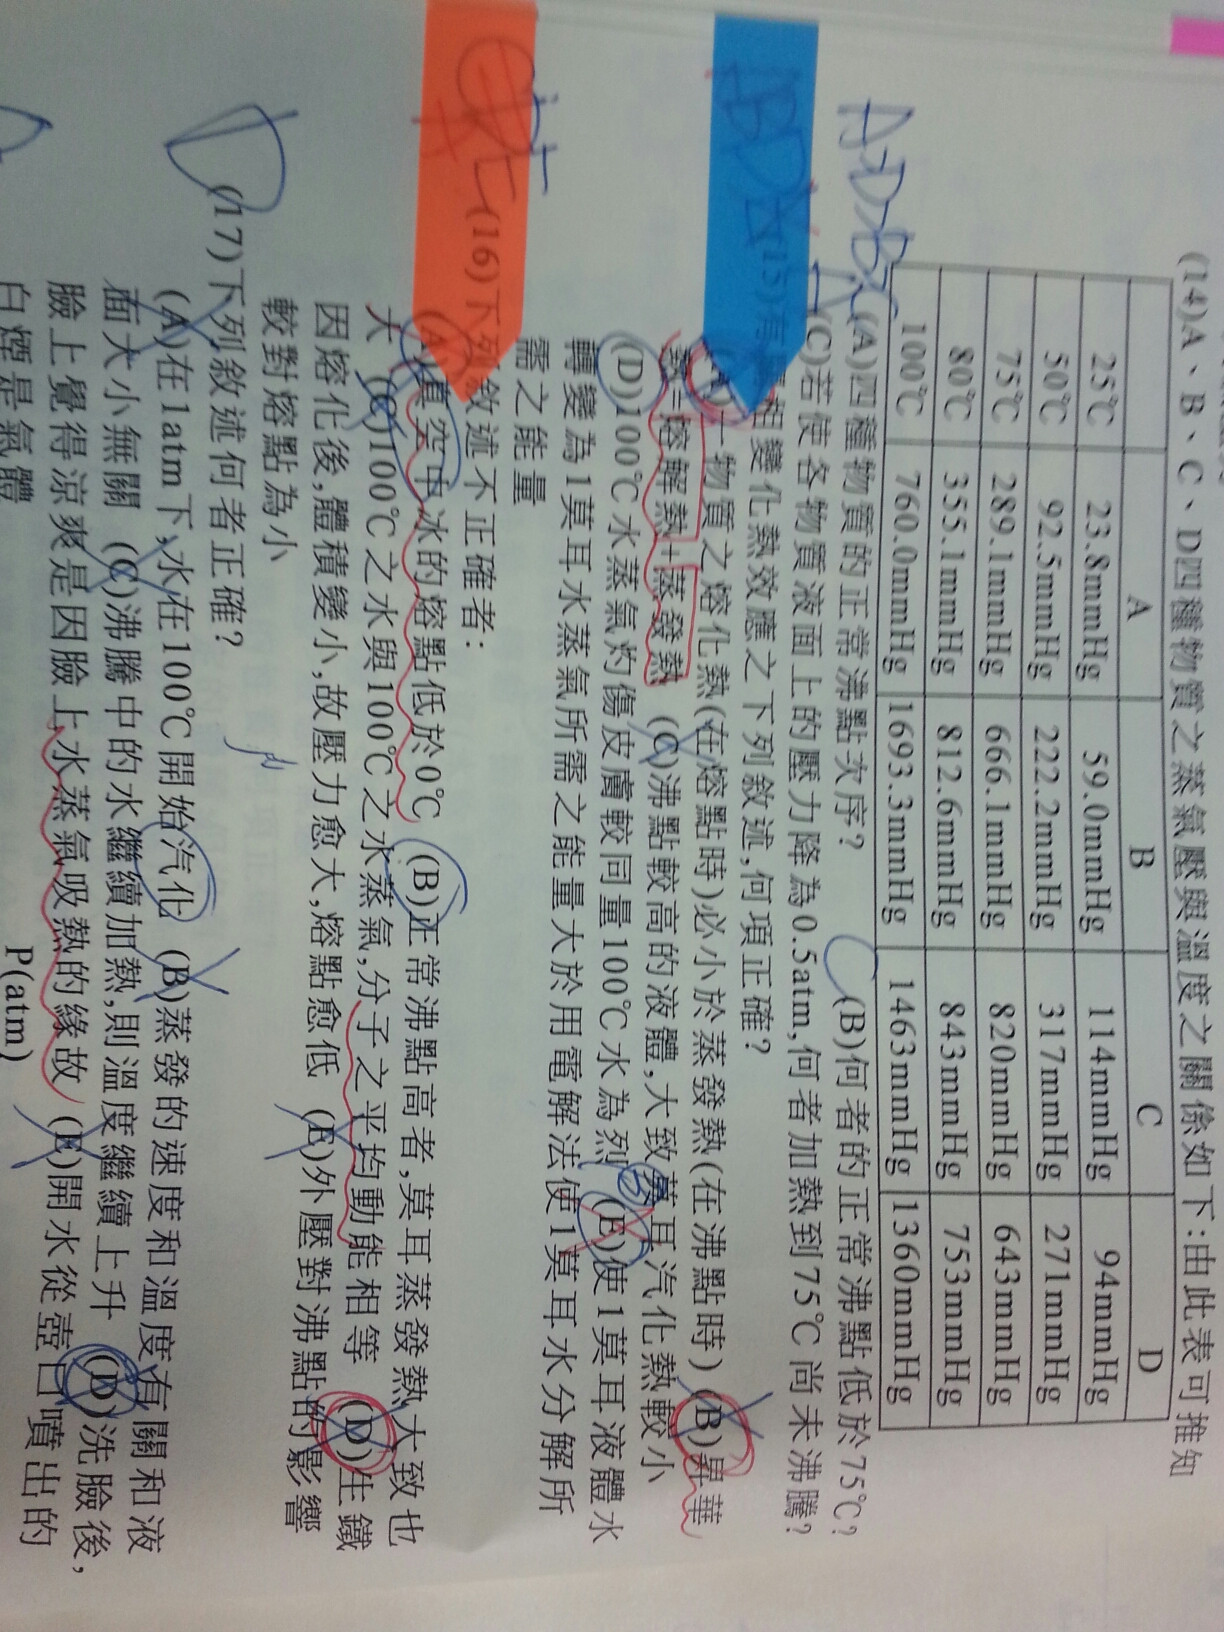 (14)A、B、C、D四種物質之蒸氣壓與溫度之關係如下:由此表可推知
A B C D
25℃ 23.8mmHg 59.0mmHg 114mmHg 94mmHg
50℃ 92.5mmHg 222.2mmHg 317mmHg 271mmHg
75℃ 289.1mmHg 666.1mmHg 820mmHg 643mmHg
80℃ 355.1mmHg 812.6mmHg 843mmHg 753mmHg
100℃ 760.0mmHg 1693.3mmHg 1463mmHg 1360mmHg
A>D>B>C
(A)四種物質的正常沸點次序? (B)何者的正常沸點低於75℃?
(C)若使各物質液面上的壓力降為0.5atm,何者加熱到75℃尚未沸騰?
(15)有 相變化熱效應之下列敘述,何項正確?
(A)一物質之熔化熱(在熔點時)必小於蒸發熱(在沸點時) (B)昇華
熱=熔解熱+蒸發熱 (C)沸點較高的液體,大致莫耳汽化熱較小
(D)100℃水蒸氣灼傷皮膚較同量100℃水為烈 (E)使1莫耳液體水
轉變為1莫耳水蒸氣所需之能量大於用電解法使1莫耳水分解所
需之能量
(16)下列敘述不正確者:
(A)真空中冰的熔點低於0℃ (B)正常沸點高者,莫耳蒸發熱大致也
大 (C)100℃之水與100℃之水蒸氣,分子之平均動能相等 (D)生鐵
因熔化後,體積變小,故壓力愈大,熔點愈低 (E)外壓對沸點的影響
較對熔點為小
D
(17)下列敘述何者正確?
(A)在1atm下,水在100℃開始汽化 (B)蒸發的速度和溫度有關和液
面大小無關 (C)沸騰中的水繼續加熱,則溫度繼續上升 (D)洗臉後,
臉上覺得涼爽是因臉上水蒸氣吸熱的緣故 (E)開水從壺口噴出的
白煙是氣體
P(atm)